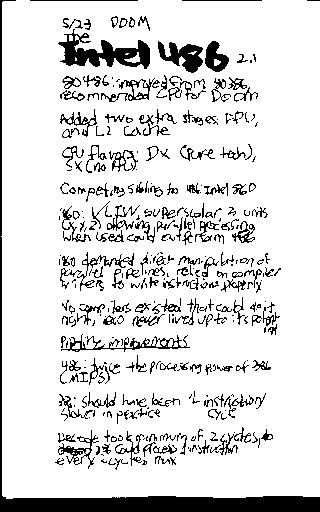 5/23 DOOM
The
Intel 486 2.1
80486: improved from 80386,
recommended CPU for Doom
Added two extra stages, FPU,
and L1 Cache
CPU flavors: DX (Pure tech),
SX (no FPU)
Competing sibling to 486: Intel 860
i860: VLIW, superscalar, 2 units
allowing parallel processing
When used could outperform 486
i860 demanded direct manipulation of
parallel pipelines, relied on compiler
writers to write instructions properly
No compilers existed that could do it
right, i860 never lived up to its potential
Pipeline improvements
486: twice the processing power of 386
(MIPS)
386: should have been 1 instruction/
slower in practice cycle
Decode took minimum of 2 cycles, so
could process 1 instruction
every 2 cycles, max